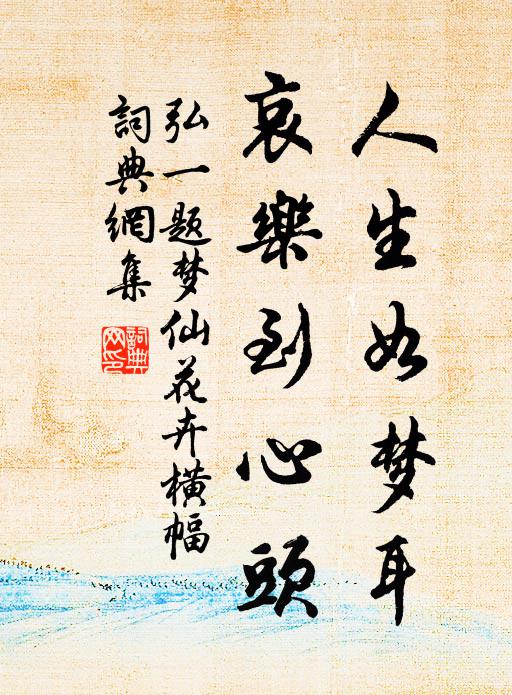 人生如梦耳
哀樂到心頭
弘一题梦仙花卉横幅
詞典網集
詞典
网印